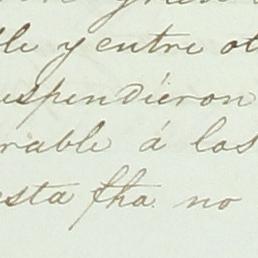 lle y entre ot
uspendiéron
rable á los
esta fha no